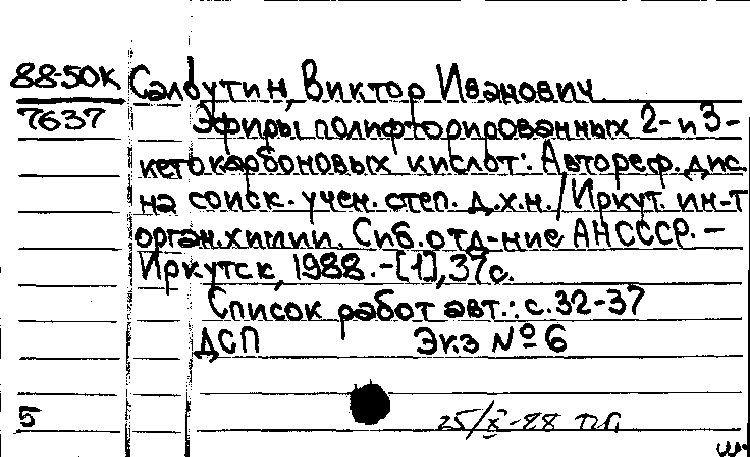 88-50К Салоутин, Виктор Иванович
7637 Эфиры полифторированных 2- и 3-
кетокарбоновых кислот: Автореф. дис.
на соиск. учен. степ. д.х.н. / Иркут. ин-т
орган. химии. Сиб. отд-ние АН СССР. –
Иркутск, 1988. - [1], 37 с.
Список работ авт.: с. 32-37
ДСП Экз № 6
5 25/X-88